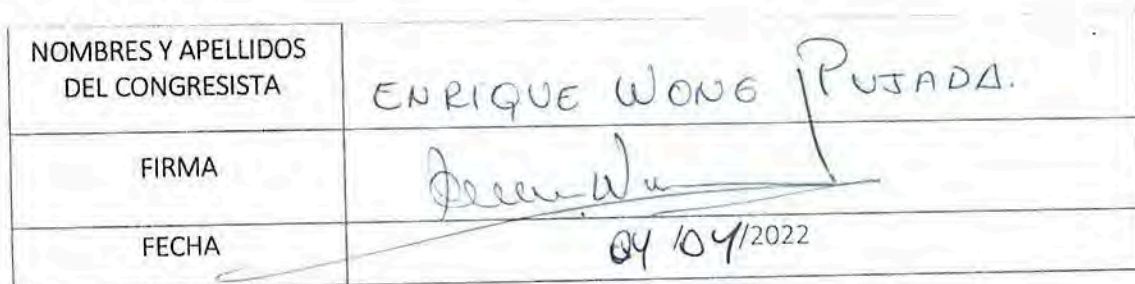 NOMBRES Y APELLIDOS
DEL CONGRESISTA
ENRIQUE WONG PUJADA.
FIRMA
FECHA
04/04/2022